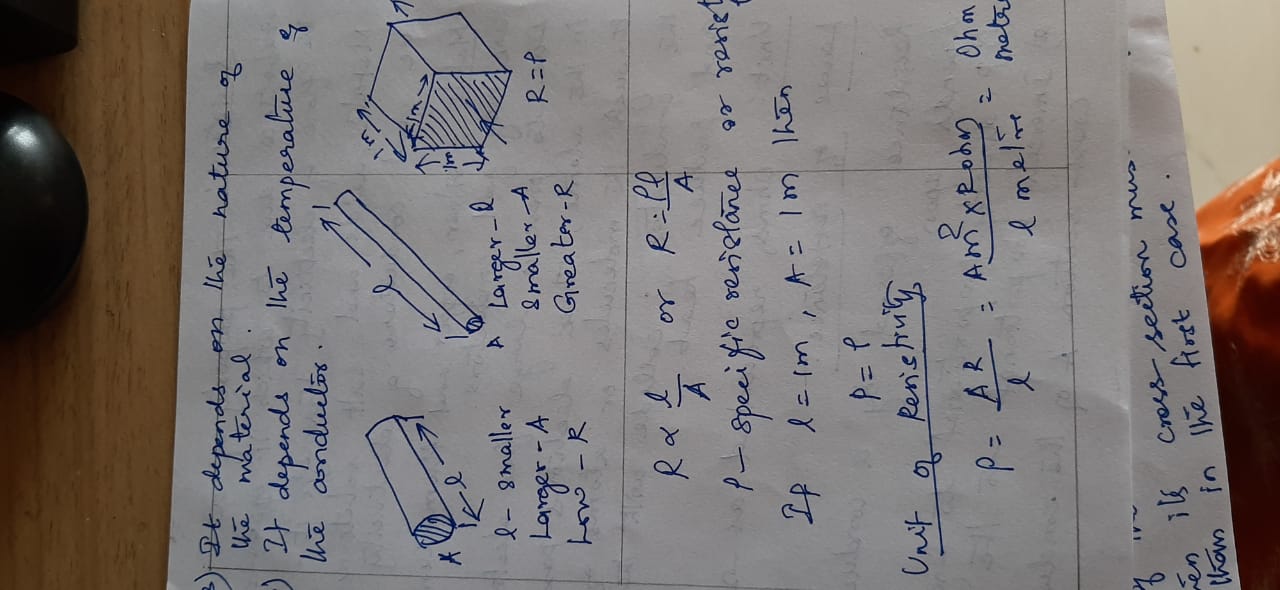 3) It depends on the nature of
the material.
It depends on the temperature of
the conductor.
A
l
l - smaller
Larger - A
Low - R
l
A
Larger - l
Smaller - A
Greater - R
1m
1m
1m
R = ρ
R ∝ l/A or R = ρl/A
ρ - specific resistance or
If l = 1m, A = 1m then
P = ρ
Unit of Resistivity
ρ = AR/l = Am² × R ohm/l metre = Ohm
cross-section
than in the first case.